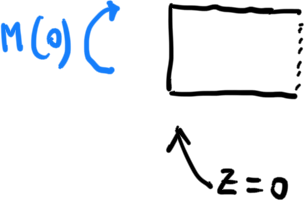 M(0)
z=0